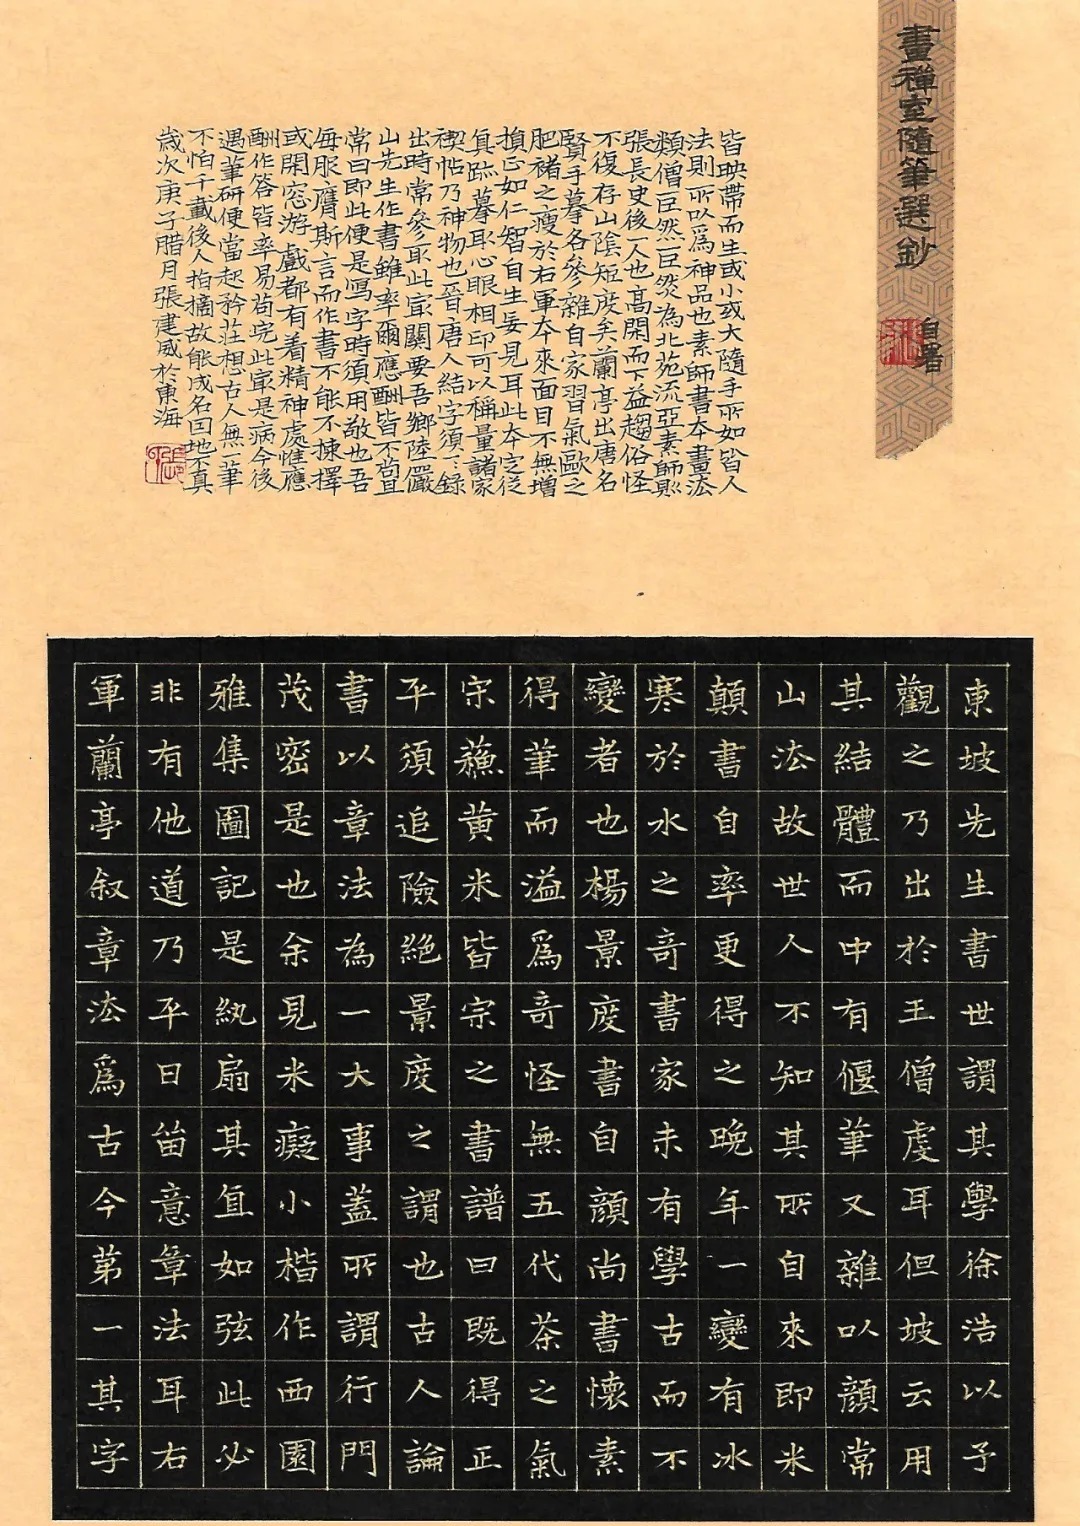 畫禪室隨筆選鈔
自署
東坡先生書世謂其學徐浩以予
觀之乃出於王僧虔耳但坡云用
其結體而中有偃筆又雜以顔常
山法故世人不知其所自來即米
顛書自率更得之晚年一變有冰
寒於水之奇書家未有學古而不
變者也楊景度書自顔尚書懷素
得筆而溢爲奇怪無五代茶之氣
宋蘇黄米皆宗之書譜曰既得正
平須追險絕景度之謂也古人論
書以章法為一大事蓋所謂行門
茂密是也余見米癡小楷作西園
雅集圖記是紈扇其直如弦此必
非有他道乃平日留意章法耳右
軍蘭亭叙章法爲古今第一其字
皆映帶而生或小或大隨手所如皆人
法則所以爲神品也素師書本畫法
類僧巨然巨然為北苑流亞素師則
張長史後一人也高閑而下益趨俗怪
不復存山陰短度矣蘭亭出唐名
賢手摹各參雜自家習氣歐之
肥褚之瘦於右軍本來面目不無增
損正如仁智自生妄見耳此本定從
真跡摹取心眼相印可以稱量諸家
禊帖乃神物也晉唐人結字須〻錄
出時常參取此最關要吾鄉陸儼
山先生作書雖率爾應酬皆不苟且
常曰即此便是寫字時須用敬也吾
每服膺斯言而作書不能不揀擇
或閑窓游戲都有着精神處惟應
酬作答皆率易苟完此最是病今後
遇筆研便當起矜莊想古人無一筆
不怕千載後人拍摘故能成名因地不真
歲次庚子腊月張建威於東海